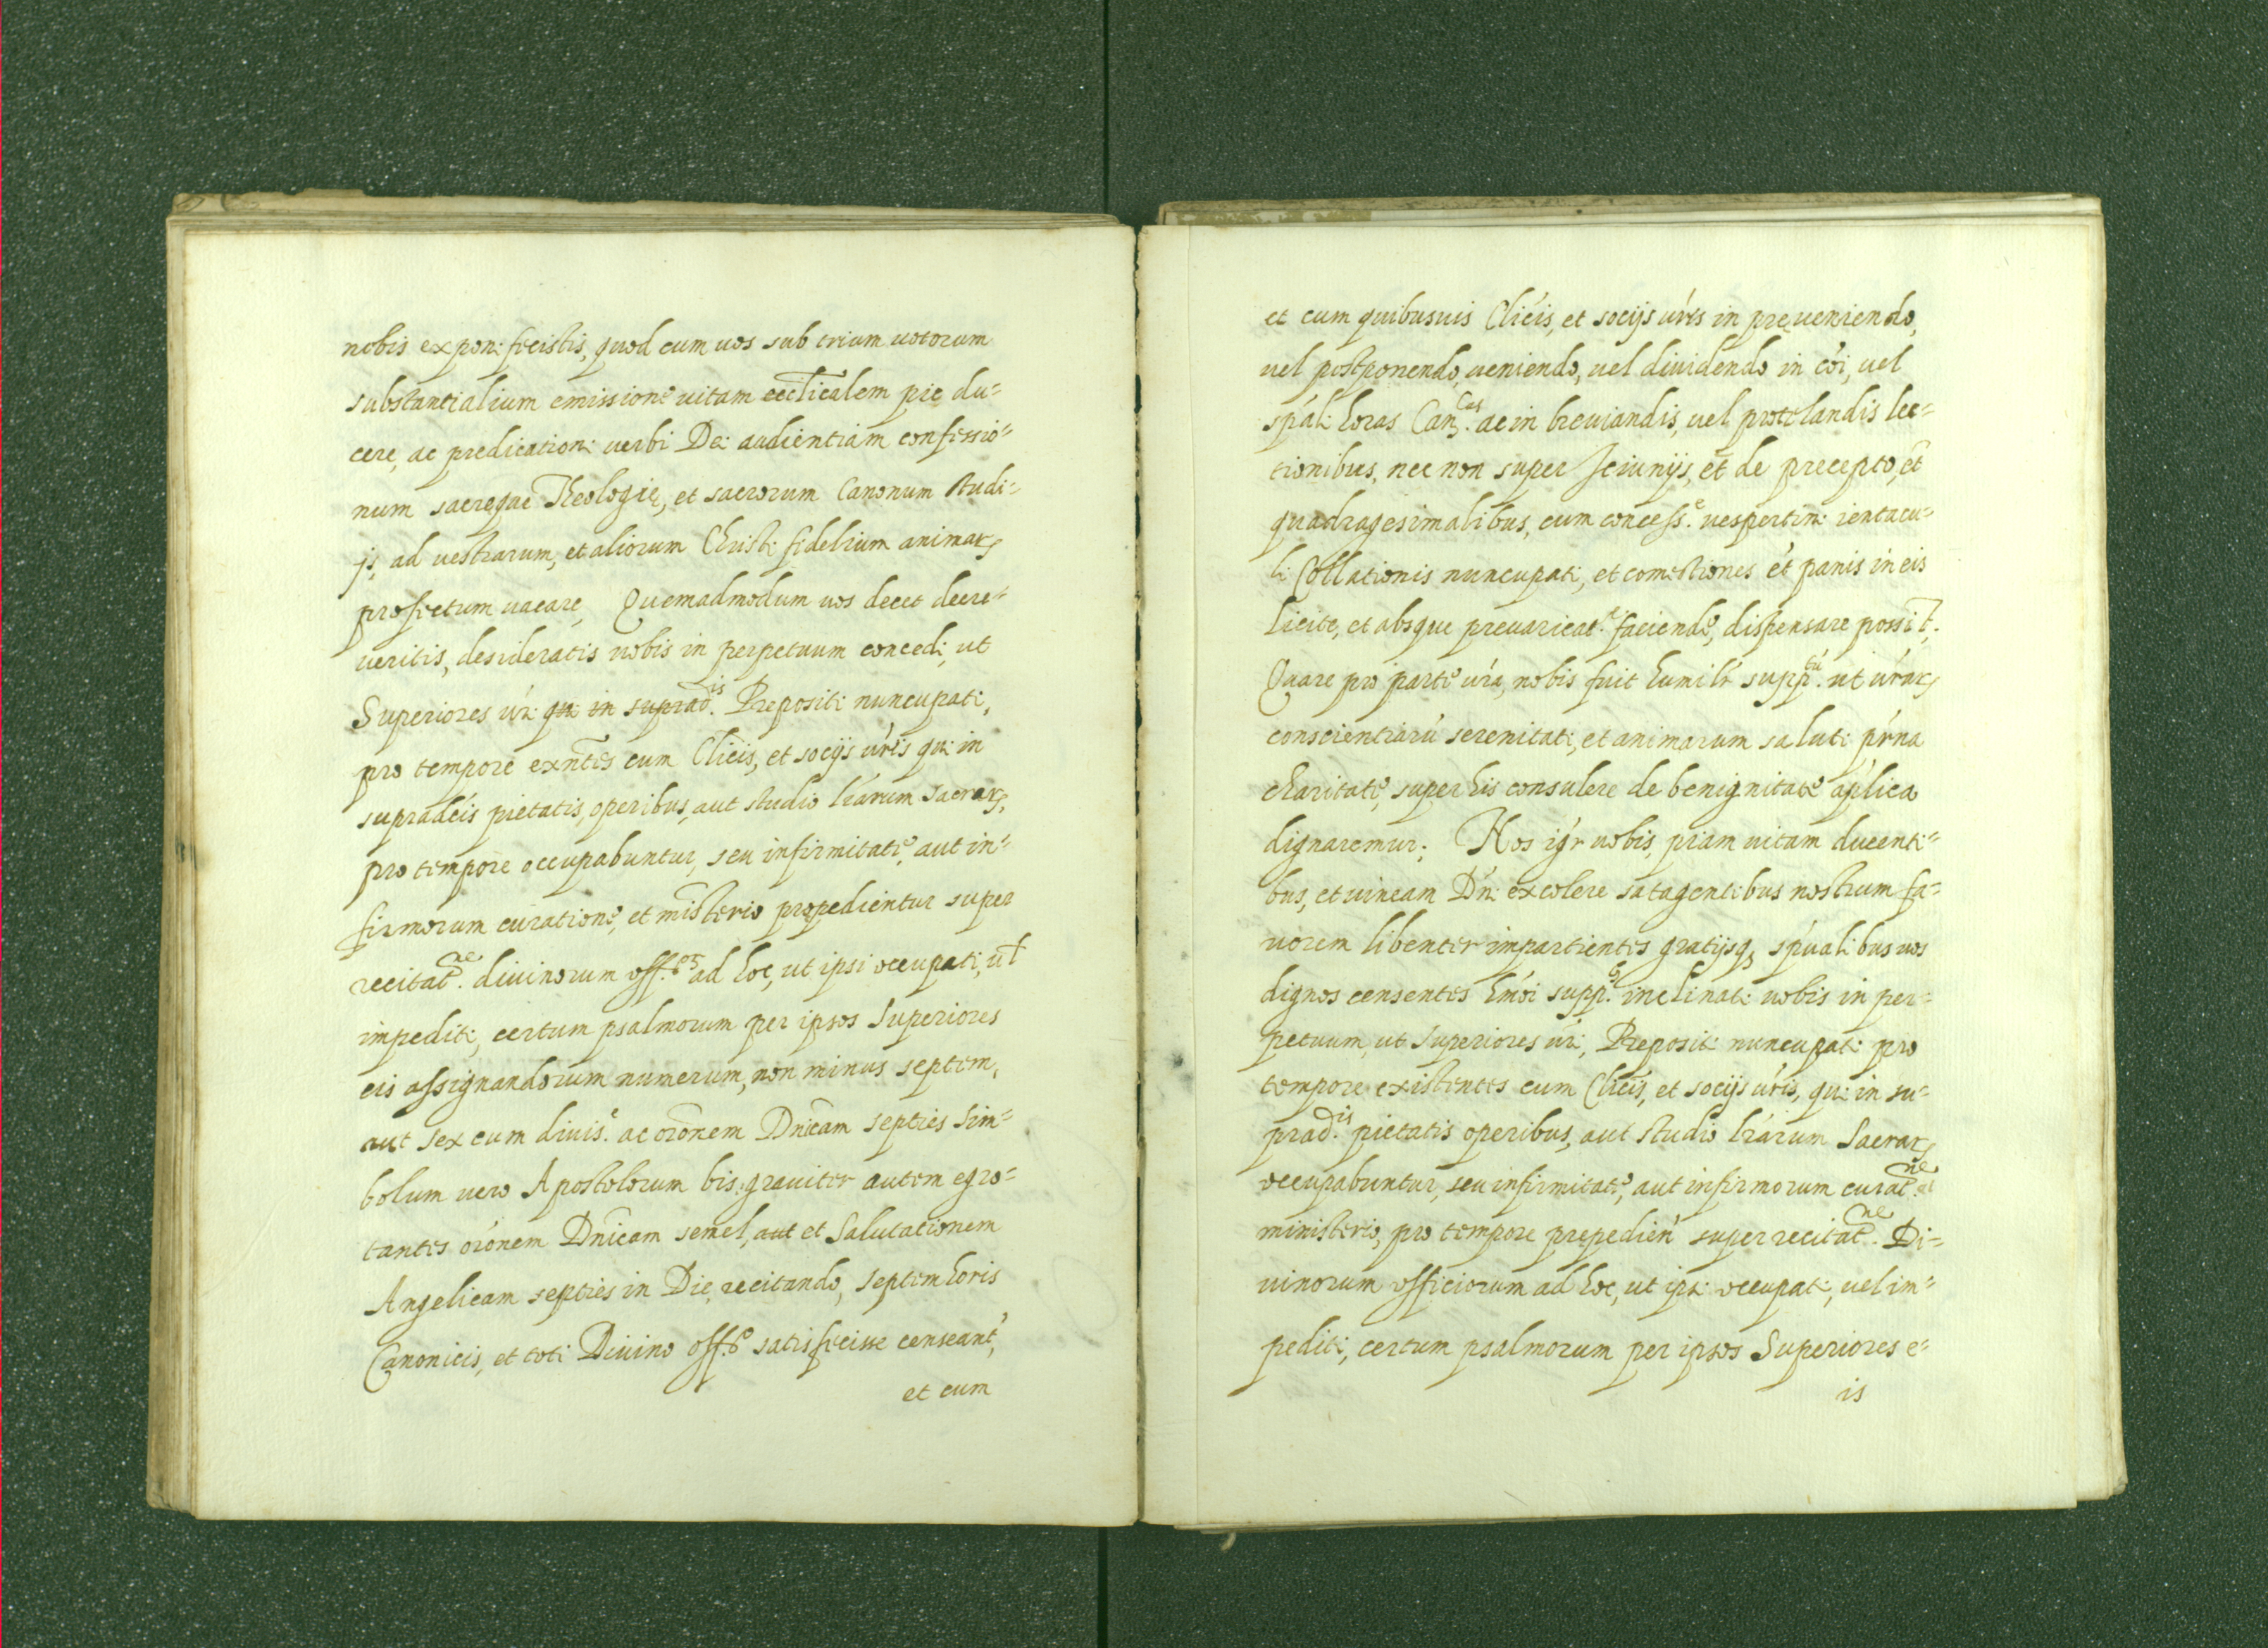 nobis exponi fecistis, quod cum uos sub trium uotorum
substantialium emissione uitam eccl̃icalem pie du=
cere, ac predicationi uerbi Dei audientiam confessio=
num sacręque Theologię, et sacrorum Canonum studi=
js, ad vestrarum, et aliorum Christi fidelium animarꝝ
profectum uacare, Quemadmodum uos decet decre=
ueritis, desideratis uobis in perpetuum concedi, ut
Superiores ur̃i qui in suprad.is Prepositi nuncupati,
pro tempore exñtes cum Clicis, et socijs ur̃is qui in
supradcis pietatis, operibus, aut studio lr̃arum sacrarꝝ,
pro tempore occupabuntur, seu infirmitate, aut in=
firmorum curatione, et misterio prepedientur super
recitat.ne diuinorum off. ad hoc, ut ipsi occupati, ul̃
impediti, certum psalmorum per ipsos Superiores
eis assignandorum numerum, non minus septem,
aut sex cum diuis.e ac orõnem Dnĩcam septies Sim=
bolum uero Apostolorum bis, grauiter autem egro=
tantes orõnem Dnĩcam semel, aut et Salutationem
Angelicam septies in Die, recitando, septem horis
Canonicis, et toti Diuino off.o satisfecisse censeant',
et cum
et cum quibusuis Clicis, et socijs ur̃is in pręueniendo,
uel postponendo, ueniendo, uel diuidendo in coĩ, uel
spaĺi horas Can.cas ac in breuiandis, uel protelandis lec=
tionibus, nec non super Ieiunijs, et̃ de precepto, et̃
quadragesimalibus, cum concess.e uespertini ientacu=
li Collationis nuncupati, et comestiones et̃ panis in eis
licite, et absque preuaricat.ni faciende, dispensare possit̃.
Quare pro parte ur̃a, nobis fuit humilr̃ supp.tũ ut ur̃arꝝ
conscientiarũ serenitati, et animarum saluti pr̃na
charitate, super his consulere de benignitate aplica
dignaremur; Nos igr̃ uobis, piam uitam ducenti=
bus, et uineam Dñi excolere satagentibus nostrum fa=
uorem libenter impartientes gratijsqꝫ spũalibus uos
dignos censentes hmõi supp. inclinati uobis in per=
petuum, ut Superiores ur̃i, Prepositi nuncupati pro
tempore existentes cum Clicis, et socijs ur̃is, qui in su=
prad.is pietatis operibus, aut studio lr̃arum Sacrarꝝ
occupabuntur, seu infirmitate, aut infirmorum curat.ne et
ministerio, pro tempore prepedieñ super recitat.ne Di=
uinorum officiorum ad hoc, ut ipsi occupati, uel im=
pediti, certum psalmorum per ipsos Superiores e=
is